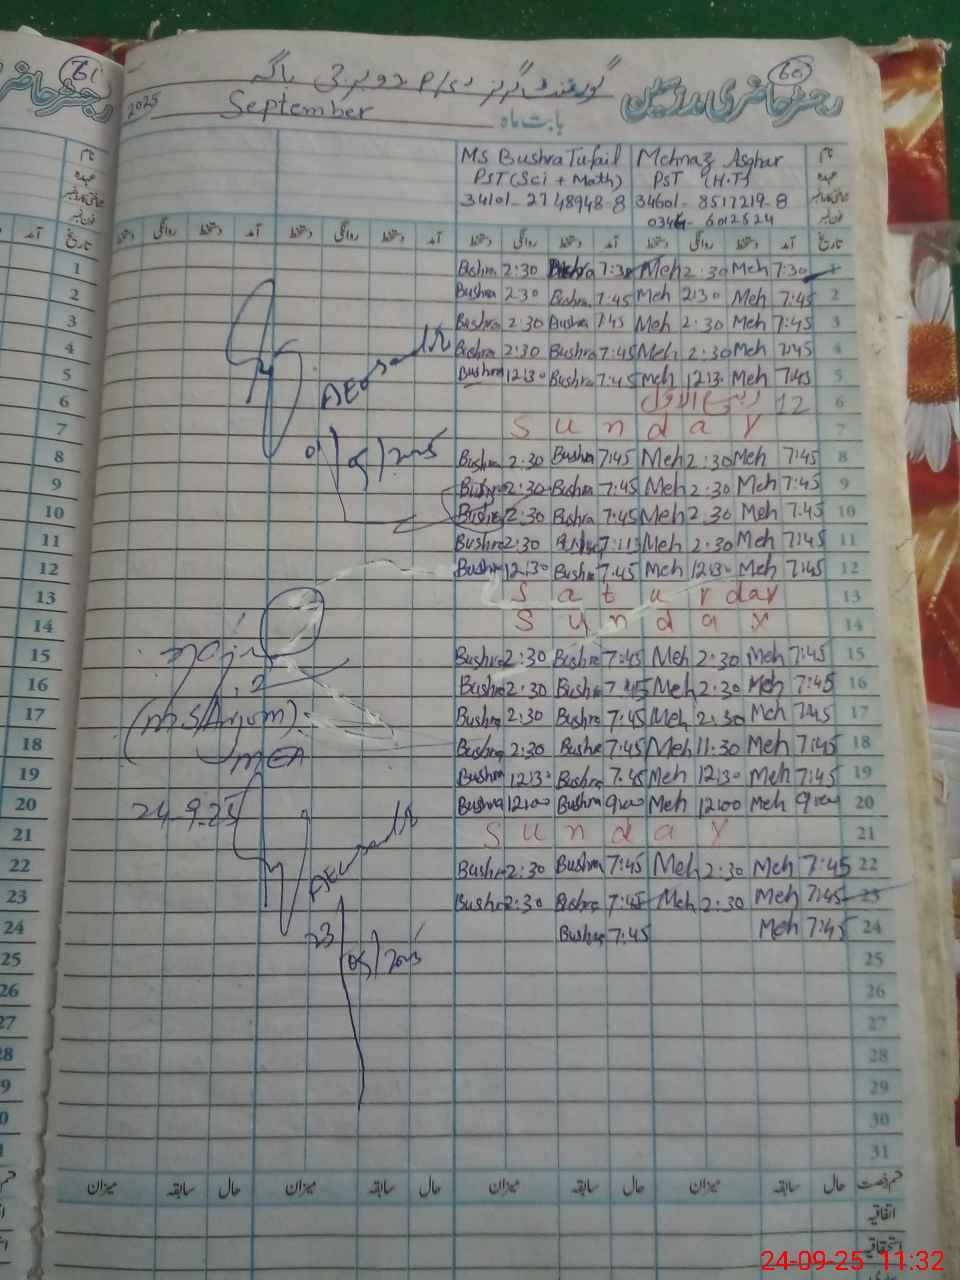 60
رجسٹر حاضری مدرسین
گورنمنٹ گرلز
بابت ماہ September 2025
نام Mehnaz Asghar Ms Bushra Tufail
عہدہ PST (H.T) PST (Sci + Math)
34601-8517219-8 34101-2748948-8
فون نمبر
تاریخ آمد دستخط روانگی دستخط آمد دستخط روانگی دستخط آمد دستخط روانگی دستخط آمد دستخط روانگی دستخط
Bushra 2:30 Bushra 7:30 Meh 2:30 Meh 7:30 1
Bushra 2:30 Bushra 7:45 Meh 2:30 Meh 7:45 2
Bushra 2:30 Bushra 7:45 Meh 2:30 Meh 7:45 3
Bushra 2:30 Bushra 7:45 Meh 2:30 Meh 7:45 4
Bushra 12:30 Bushra 7:45 Meh 12:30 Meh 7:45 5
12 ربیع الاول 6
Sunday 7
Bushra 2:30 Bushra 7:45 Meh 2:30 Meh 7:45 8
Bushra 2:30 Bushra 7:45 Meh 2:30 Meh 7:45 9
Bushra 2:30 Bushra 7:45 Meh 2:30 Meh 7:45 10
Bushra 2:30 Meh 2:30 Meh 7:45 11
Bushra 12:30 Bushra 7:45 Meh 12:30 Meh 7:45 12
Saturday 13
Sunday 14
Bushra 2:30 Bushra 7:45 Meh 2:30 Meh 7:45 15
Bushra 2:30 Bushra 7:45 Meh 2:30 Meh 7:45 16
Bushra 2:30 Bushra 7:45 Meh 2:30 Meh 7:45 17
Bushra 2:30 Bushra 7:45 Meh 11:30 Meh 7:45 18
Bushra 12:30 Bushra 7:45 Meh 12:30 Meh 7:45 19
Bushra 12:00 Bushra 9:00 Meh 12:00 Meh 9:00 20
Sunday 21
Bushra 2:30 Bushra 7:45 Meh 2:30 Meh 7:45 22
Bushra 2:30 Bushra 7:45 Meh 2:30 Meh 7:45 23
Bushra 7:45 Meh 7:45 24
25
26
27
28
29
30
31
AEO
MEA
24-9-25
AEO
قسم رخصت حال سابقہ میزان حال سابقہ میزان حال سابقہ میزان حال سابقہ میزان
اتفاقیہ
استحقاقیہ
61
24-09-25 11:32